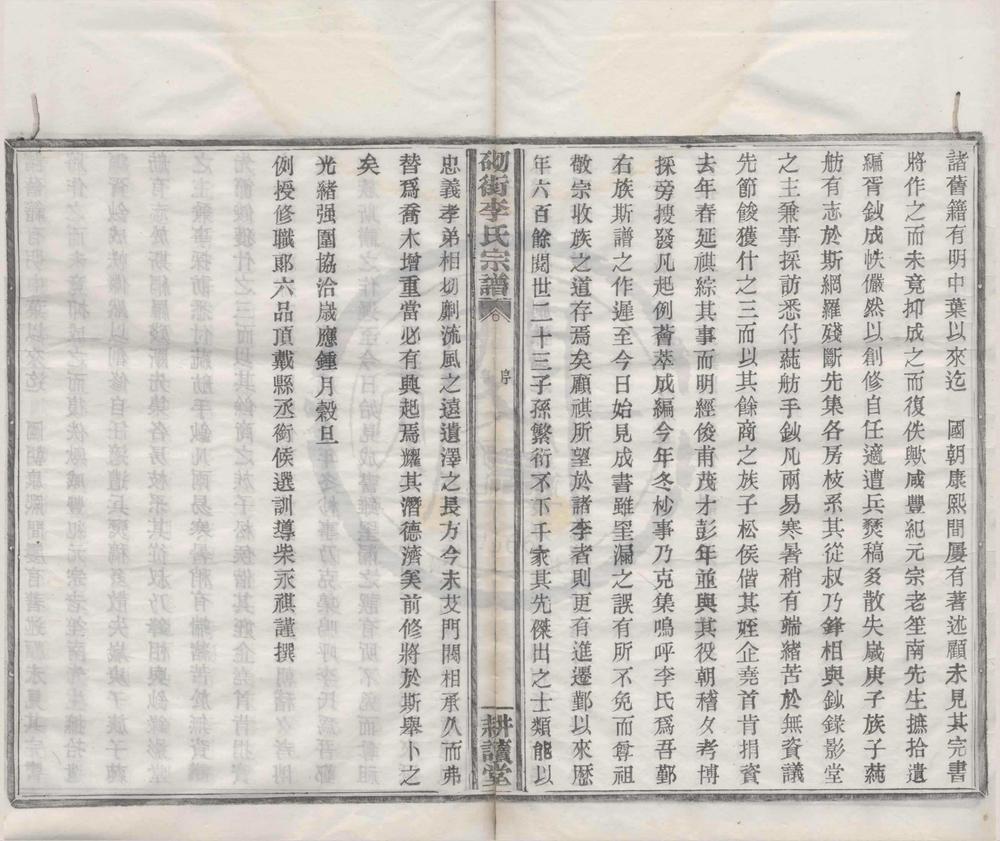 諸舊籍有明中葉以來迄　國朝康熙間屢有著述顧未見其完書
將作之而未竟抑成之而復佚歟咸豐紀元宗老笙南先生摭拾遺
編胥鈔成帙儼然以創修自任適遭兵燹稿多散失歲庚子族子蒓
舫有志於斯網羅殘斷先集各房枝系其從叔乃鋒相與鈔錄影堂
之主秉事採訪悉付蒓舫手鈔凡兩易寒暑稍有端緒苦於無資議
先節餕獲什之三而以其餘商之族子松侯偕其姪企堯首肯捐資
去年春延祺綜其事而明經俊甫茂才彭年並與其役朝稽夕考博
採旁搜發凡起例薈萃成編今年冬杪事乃克集嗚呼李氏爲吾鄞
右族斯譜之作遲至今日始見成書雖罣漏之誤有所不免而尊祖
敬宗收族之道存焉矣顧祺所望於諸李者則更有進遷鄞以來歷
年六百餘閱世二十三子孫繁衍不下千家其先傑出之士類能以
砌街李氏宗譜
序
耕讀堂
忠義孝弟相切劘流風之遠遺澤之長方今未艾門閥相承久而弗
替爲喬木增重當必有興起焉耀其潛德濟美前修將於斯舉卜之
矣
光緒强圉協洽歲應鍾月穀旦
例授修職郎六品頂戴縣丞銜候選訓導柴永祺謹撰